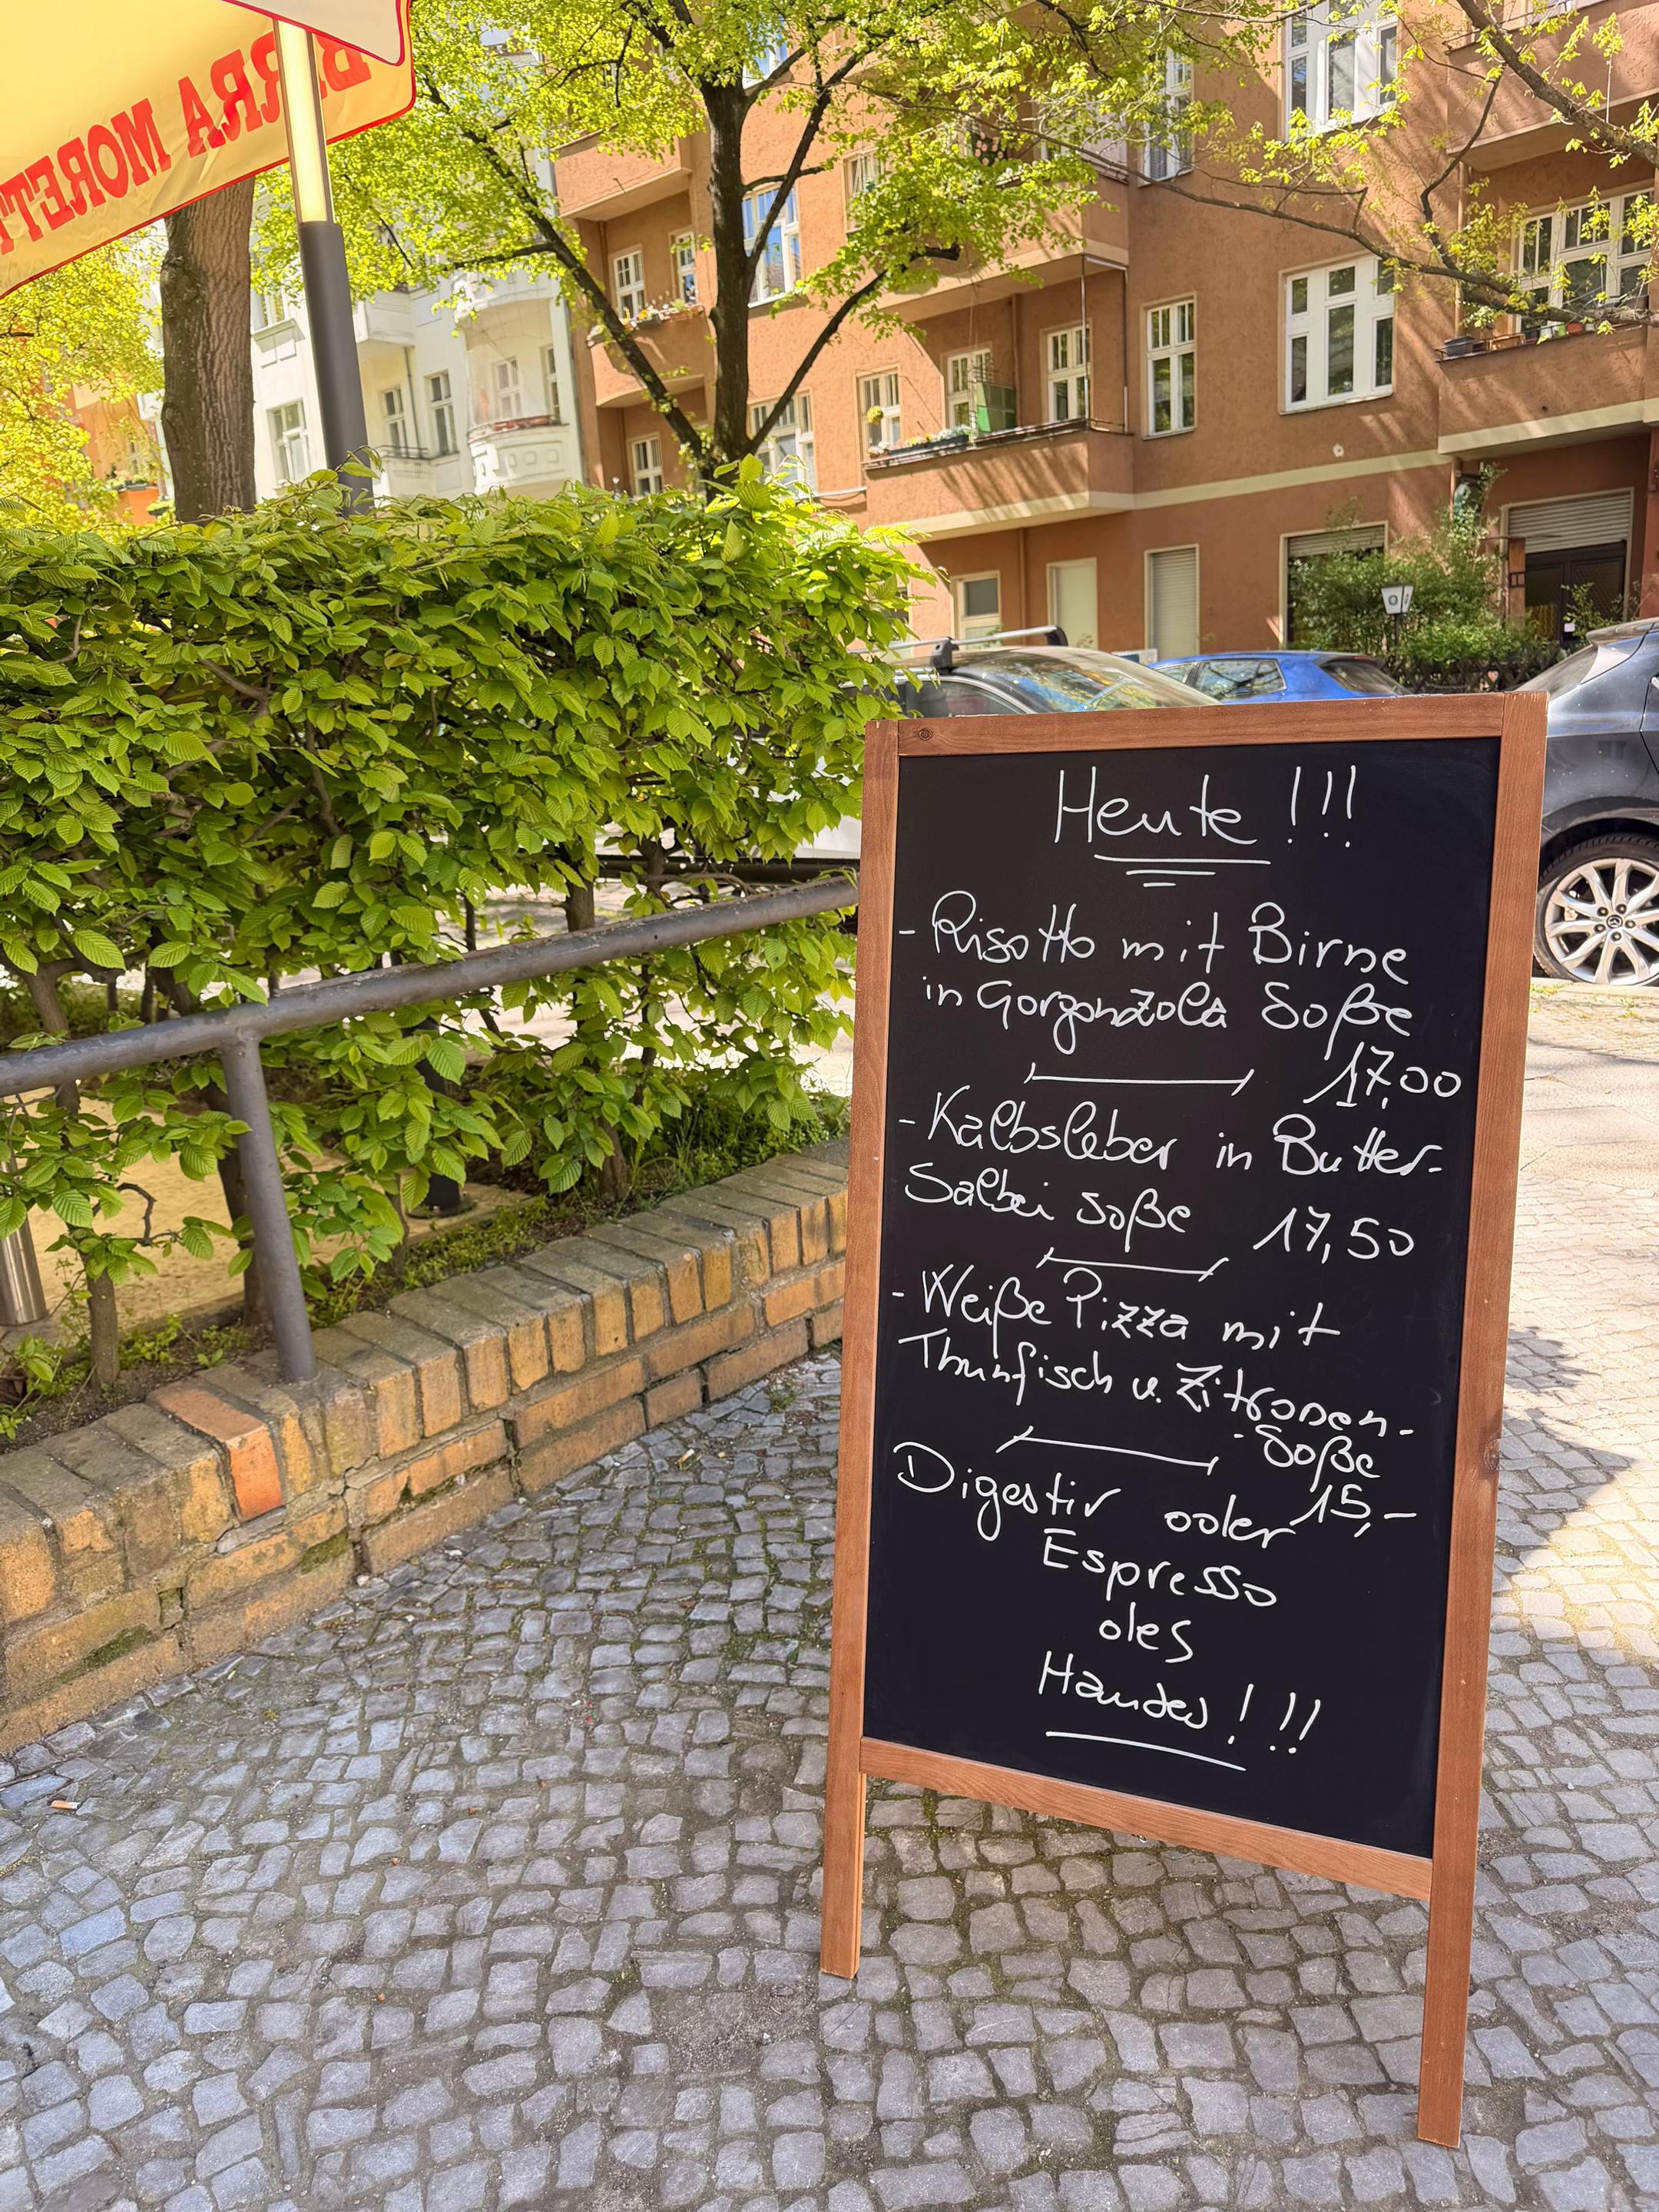 BIRRA MORETT
Heute !!!
- Risotto mit Birne
in Gorgonzola Soße
17,00
- Kalbsleber in Butter-
Salbei Soße 17,50
- Weiße Pizza mit
Thunfisch u. Zitronen-
- Soße
15,-
Digestiv oder
Espresso
des
Hauses ! !!